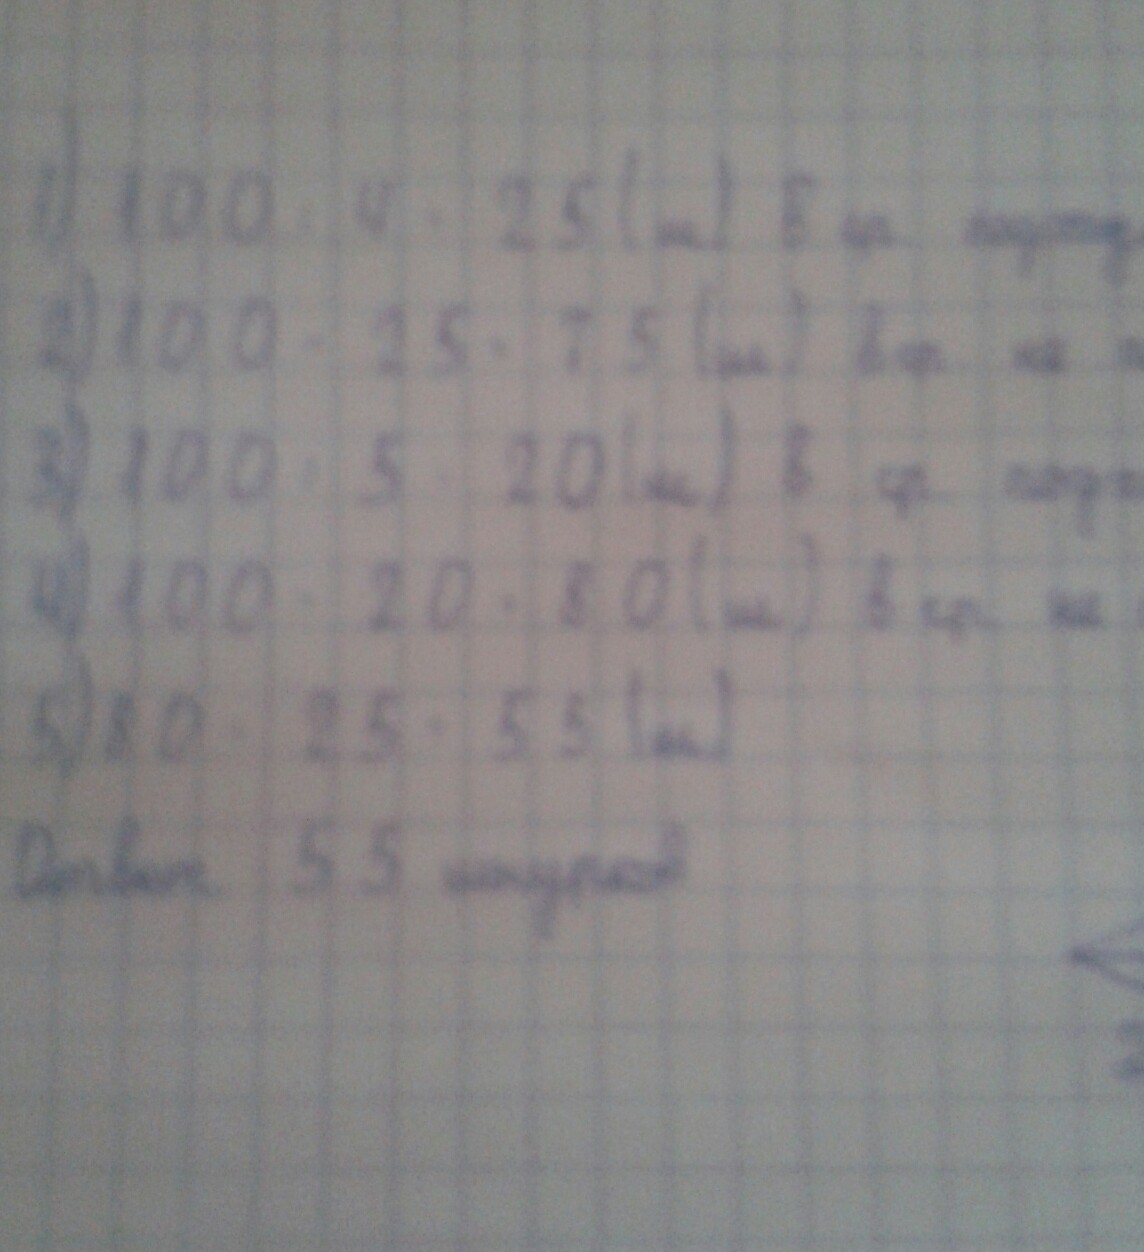 1) 100 : 4 = 25 (ш) в ср
2) 100 - 25 = 75 (ш) в ср не
3) 100 : 5 = 20 (ш) в ср
4) 100 - 20 = 80 (ш) в ср не
5) 80 - 25 = 55 (ш)
Ответ 55